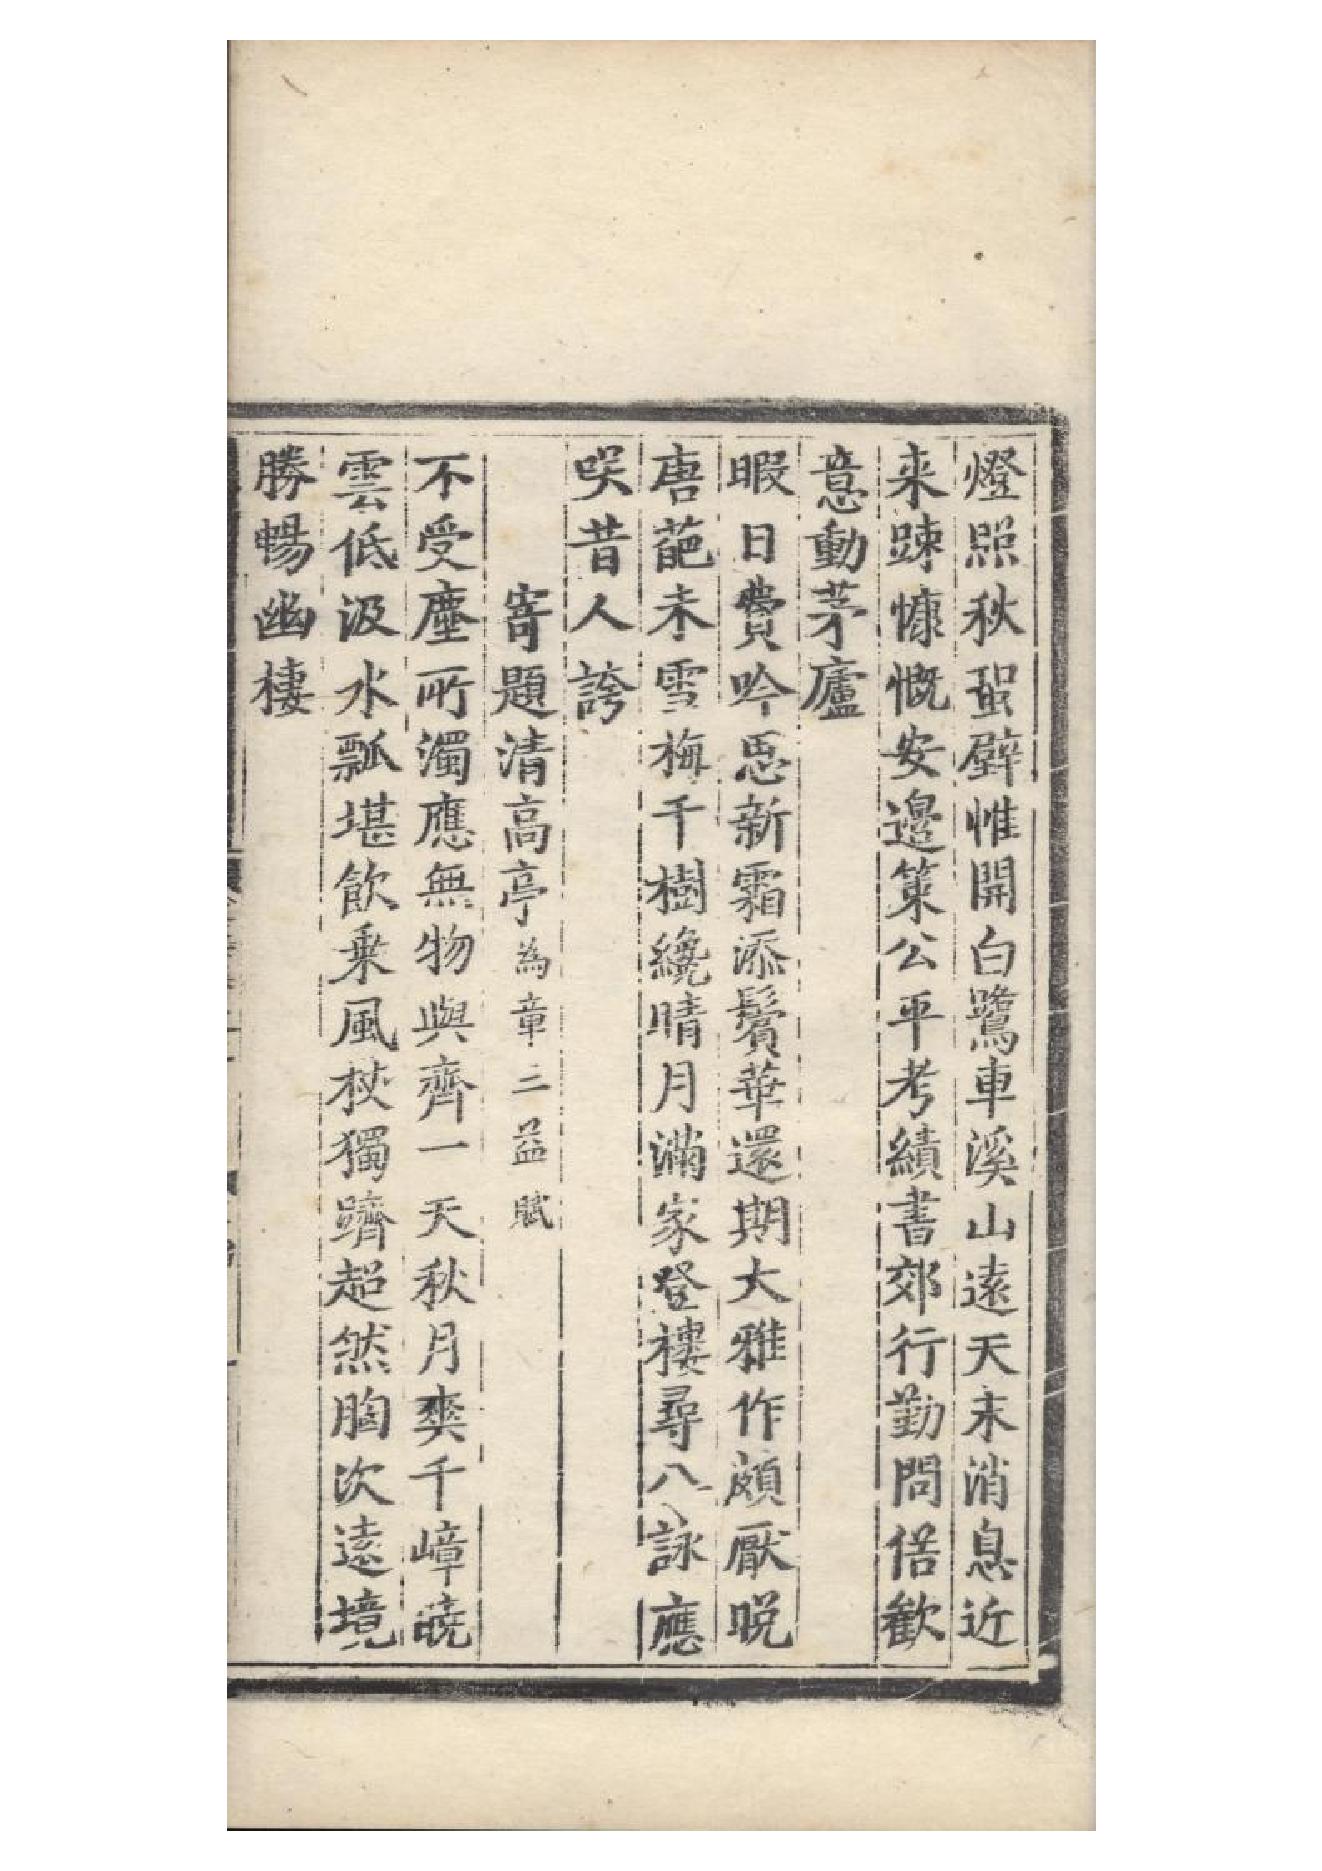 燈照秋蛩壁惟開白鷺車溪山遠天末消息近
来踈慷慨安邊策公平考績書郊行勤問俗歡
意動茅廬
暇日費吟思新霜添鬢華還期大雅作頗厭晚
唐葩未雪梅千樹纔晴月滿家登樓尋八詠應
咲昔人誇
寄題清高亭為章三益賦
不受塵所濁應無物與齊一天秋月爽千嶂曉
雲低汲水瓢堪飲乗風杖獨躋超然胸次遠境
勝暢幽棲